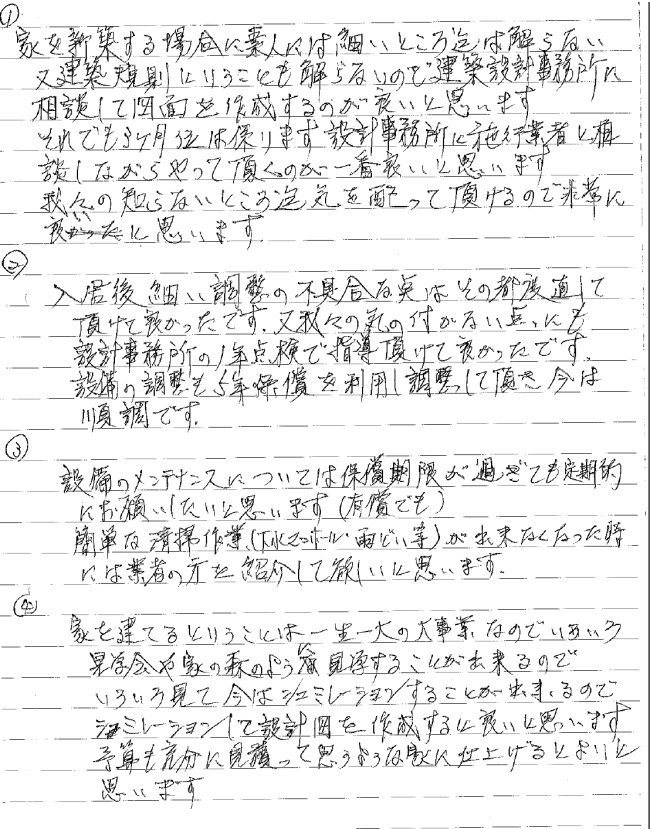 ①
家を新築する場合に素人には細いところ迄は解らない
又建築規則ということも解らないので建築設計事務所に
相談して図面を作成するのが良いと思います
それでも3ヶ月位は保ります 設計事務所に施行業者と相
談しながらやって頂くのが一番良いと思います
我々の知らないところ迄気を配って頂けるので非常に
良いと思います.
②
入居後細い調整の不具合な点はその都度直して
頂けて良かったです. 又我々の気の付かない点にも
設計事務所の1年点検で指導頂けて良かったです.
設備の調整も5年保償を利用し調整して頂き今は
順調です.
③
設備のメンテナンスについては保償期限が過ぎても定期的
にお願いしたいと思います(有償でも)
簡単な清掃作業(下水マンホール・雨どい等)が出来なくなった時
には業者の方を紹介して欲しいと思います.
④
家を建てるということは一生一大の大事業なのでいろいろ
見学会や家の森のような 見学することが出来るので
いろいろ見て今はシュミレーションすることが出来るので
シュミレーションして設計図を作成すると良いと思います
予算も充分に見積って思うような家に仕上げるとよいと
思います